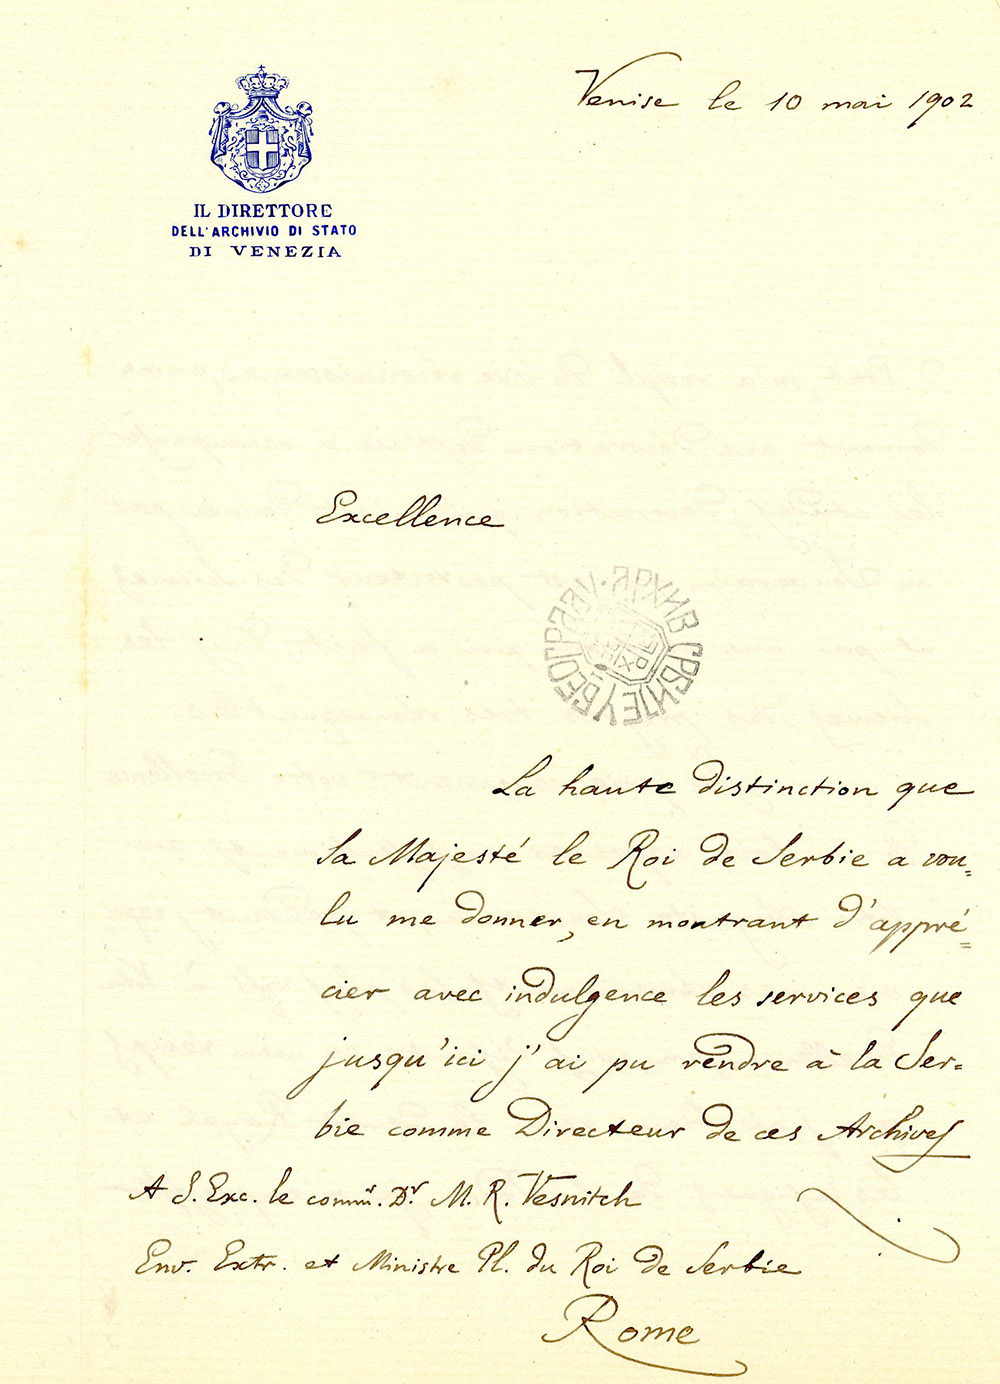 Venise le 10 mai 1902
IL DIRETTORE
DELL'ARCHIVIO DI STATO
DI VENEZIA
Excellence
АРХИВ СРБИЈЕ У БЕОГРАДУ
La haute distinction que
Sa Majesté le Roi de Serbie a vou=
lu me donner, en montrant d'appré=
cier avec indulgence les services que
jusqu'ici j'ai pu rendre à la Ser=
bie comme Directeur de ces Archives
A S. Exc. le comm.r Dr M. R. Vesnitch
Env. Extr. et Ministre Pl. du Roi de Serbie
Rome